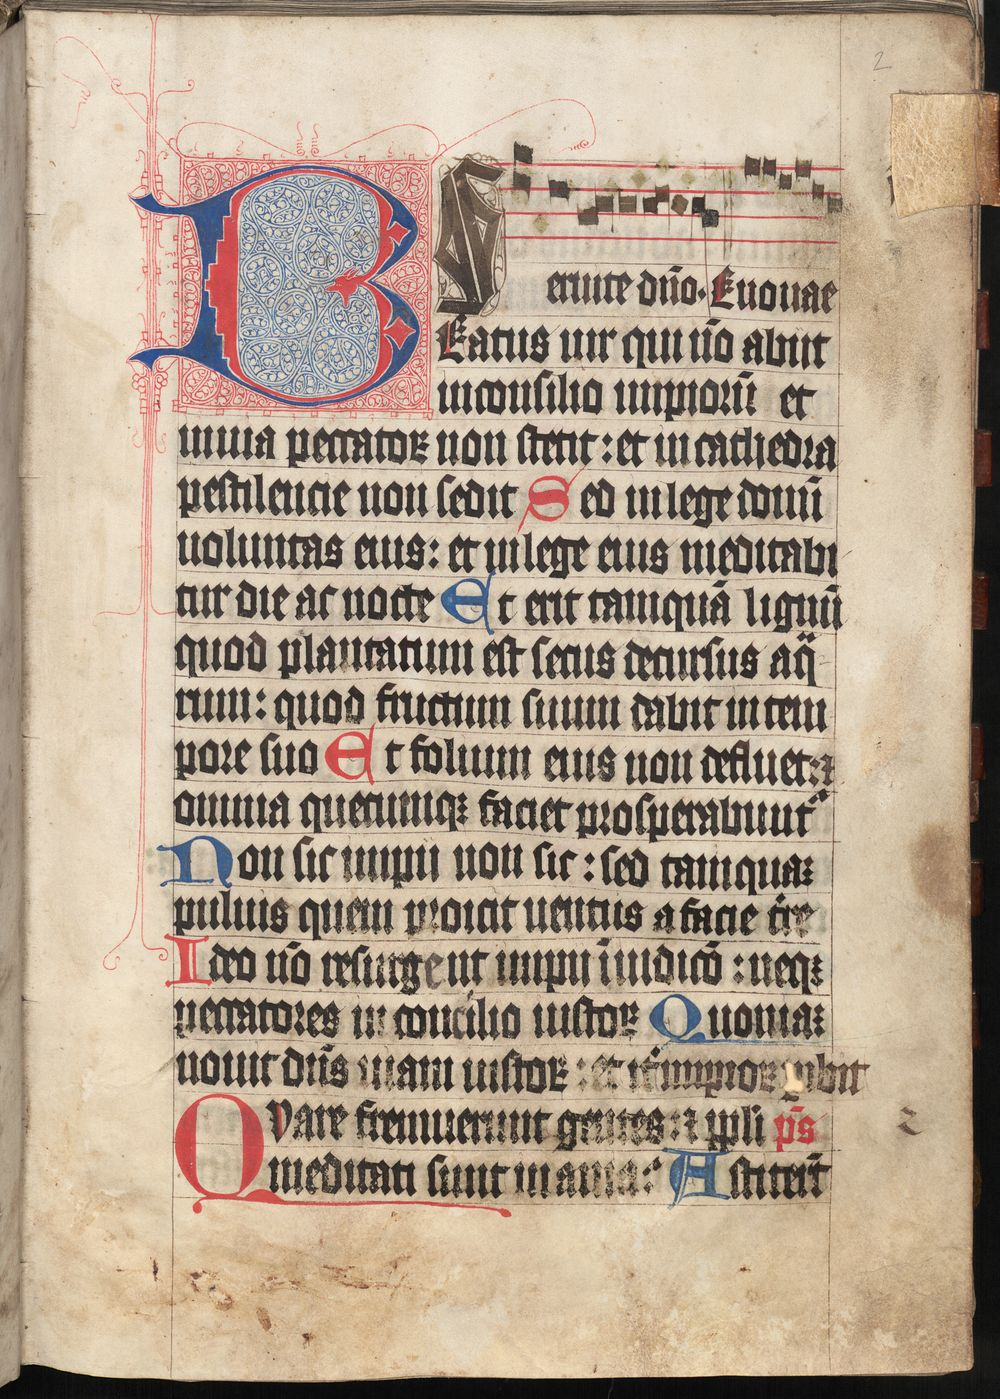 2
Seruite dño. Euouae
BEatus uir qui nõ abiit
in consilio impiorũ et
in uia peccatoꝝ non stetit : et in cathedra
pestilencie non sedit Sed in lege domĩ
uoluntas eius : et in lege eius meditabi
tur die ac nocte Et erit tamquã lignũ
quod plantatum est secus decursus aq̃
rum : quod fructum suum dabit in tem
pore suo Et folium eius non defluet : ⁊
omnia quecumqꝫ faciet prosperabunt᷑
Non sic impii non sic : sed tamquaꝫ
puluis quem proicit uentus a facie t̃re
Ideo nõ resurgent impii ĩ iudicõ : neqꝫ
peccatores in concilio iustoꝝ Quoniaꝫ
nouit dñs uiam iustoꝝ : et it̃ impioꝝ ꝑibit
Quare fremuerunt gentes : ⁊ ppl̃i p̃s
meditati sunt inania : Astiter̃t
2